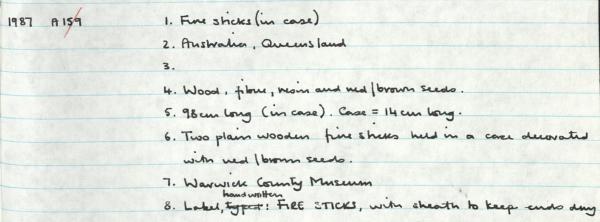 1987 A159 1. Fire sticks (in case)
2. Australia, Queensland
3.
4. Wood, fibre, resin and red/brown seeds.
5. 98cm long (in case). Case = 14cm long.
6. Two plain wooden fire sticks held in a case decorated
with red/brown seeds.
7. Warwick County Museum
handwritten
8. Label, typed: FIRE STICKS, with sheath to keep ends dry